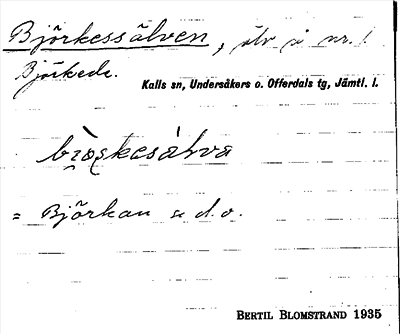 Björkessälven, älv i nr. 1.
Björkede.
Kalls sn, Undersåkers o. Offerdals tg, Jämtl. l.
= Björkan se d. o.
BERTIL BLOMSTRAND 1935